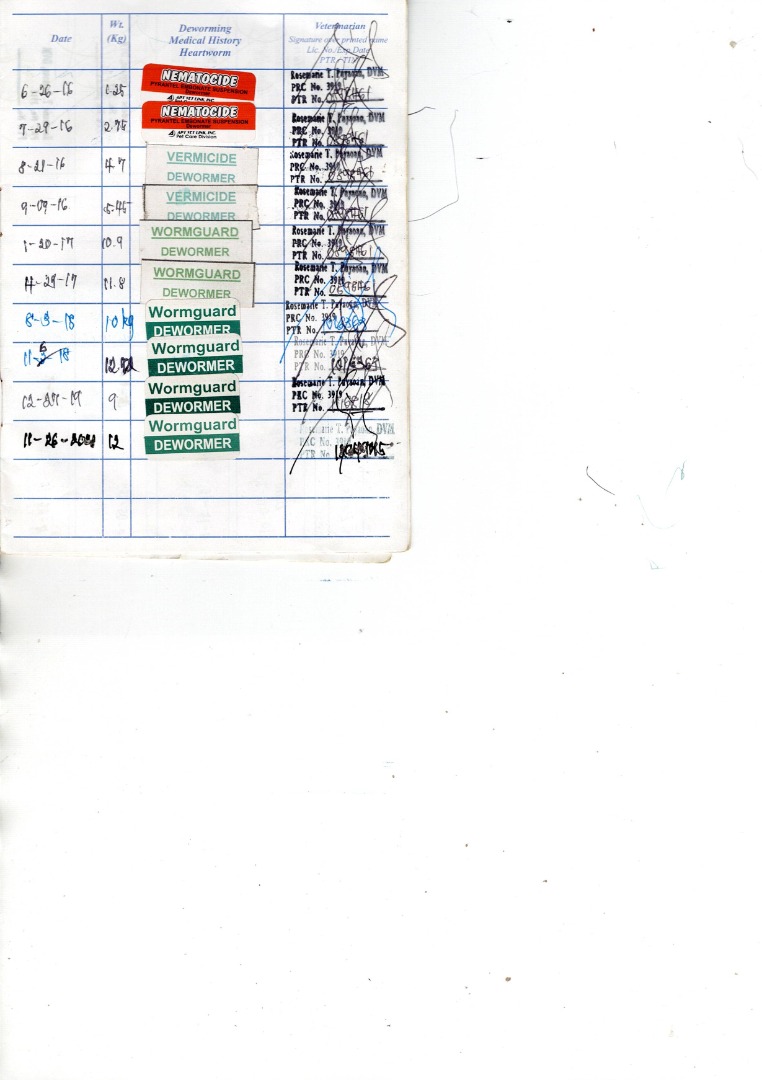 Date Wt. (Kg) Deworming Medical History Heartworm Veterinarian
Signature over printed name
Lic. No./Exp.Date
PTR
6-26-16 1.25 NEMATOCIDE
PYRANTEL EMBONATE SUSPENSION
Dewormer
Rosemarie T. Payaoan, DVM
PRC No. 3919
PTR No.
7-29-16 2.75 NEMATOCIDE
PYRANTEL EMBONATE SUSPENSION
Dewormer
Pet Care Division
Rosemarie T. Payaoan, DVM
PRC No. 3919
PTR No. 0898461
VERMICIDE
8-21-16 4.7 DEWORMER
Rosemarie T. Payaoan, DVM
PRC No. 3919
PTR No. 0898461
VERMICIDE
9-09-16 5.45 DEWORMER
Rosemarie T. Payaoan, DVM
PRC No. 3919
PTR No. 0898461
WORMGUARD
1-20-17 10.9 DEWORMER
Rosemarie T. Payaoan, DVM
PRC No. 3919
PTR No. 0898461
WORMGUARD
4-29-17 11.8 DEWORMER
Rosemarie T. Payaoan, DVM
PRC No. 3919
PTR No. 0898461
Wormguard
8-3-18 10 kg DEWORMER
Rosemarie T. Payaoan, DVM
PRC No. 3919
PTR No.
Wormguard
11-6-18 DEWORMER
Rosemarie T. Payaoan, DVM
PRC No. 3919
PTR No.
Wormguard
12-27-19 9 DEWORMER
Rosemarie T. Payaoan, DVM
PRC No. 3919
PTR No.
Wormguard
11-26-2021 12 DEWORMER
DVM
PRC No. 3919
PTR No.